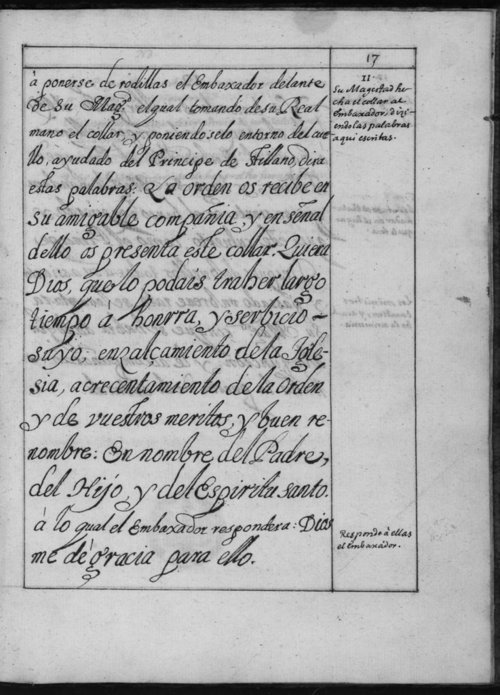 17
à ponerse de rodillas el Embaxador delante
de su Magd. el qual tomando de su Real
mano el collar, y poniendoselo entorno del cue-
llo, ayudado del Principe de Astillano, dira
estas palabras. La orden os recibe en
su amigable compañia, y en señal
dello os presenta este collar. Quiera
Dios, que lo podais traher largo
tiempo à honrra, y serbicio
suyo, enzalçamiento de la Igle-
sia, acrecentamiento de la orden
y de vuestros meritos, y buen re-
nombre: En nombre del Padre,
del Hijo, y del Espiritu santo.
à lo qual el Embaxador respondera: Dios
me dè gracia para ello.
11.
Su Magestad he-
cha el collar al
Embaxador, diçi-
endo las palabras
aqui escritas.
Responde à ellas
el Embaxador.